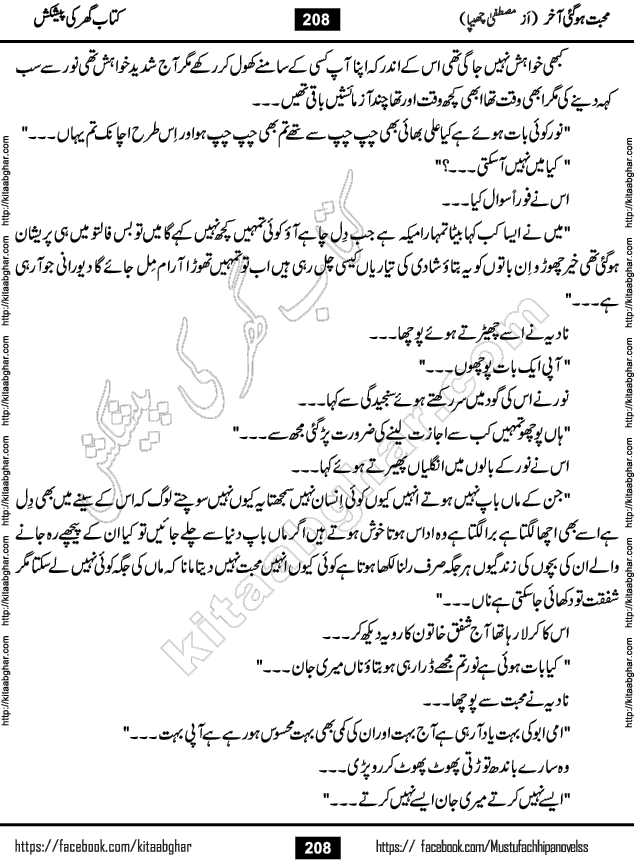 محبت ہو گئی آخر (از مصطفیٰ چھیپا)
208
کتاب گھر کی پیشکش
کبھی خواہش نہیں جاگی تھی اس کے اندر کہ اپنا آپ کسی کے سامنے کھول کر رکھے مگر آج شدید خواہش تھی نور سے سب
کہہ دینے کی مگر ابھی وقت تھا ابھی کچھ وقت اور تھا چند آزمائشیں باقی تھیں۔۔۔
"نور کوئی بات ہوئے ہے کیا علی بھائی بھی چپ چپ سے تھے تم بھی چپ چپ ہو اور اِس طرح اچانک تم یہاں۔۔۔"
" کیا میں نہیں آسکتی۔۔۔؟"
اس نے فوراً سوال کیا۔۔۔
"میں نے ایسا کب کہا بیٹا تمہارا میکہ ہے جب دِل چاہے آؤ کوئی تمہیں کچھ نہیں کہے گا میں تو بس فالتو میں ہی پریشان
ہو گئی تھی خیر چھوڑو اِن باتوں کو یہ بتاؤ شادی کی تیاریاں کیسی چل رہی ہیں اب تو تمہیں تھوڑا آرام مِل جائے گا دیورانی جو آ رہی
ہے۔۔۔"
نادیہ نے اسے چھیڑتے ہوئے پوچھا۔۔۔
" آپی ایک بات پوچھوں۔۔۔"
نور نے اس کی گود میں سر رکھتے ہوئے سنجیدگی سے کہا۔۔۔
"ہاں پوچھو تمہیں کب سے اجازت لینے کی ضرورت پڑ گئی مجھ سے۔۔۔"
اس نے نور کے بالوں میں انگلیاں پھیرتے ہوئے کہا۔۔۔
"جن کے ماں باپ نہیں ہوتے انہیں کیوں کوئی اِنسان نہیں سمجھتا یہ کیوں نہیں سوچتے لوگ کہ اس کے سینے میں بھی دِل
ہے اسے بھی اچھا لگتا ہے برا لگتا ہے وہ اداس ہوتا خوش ہوتے ہیں اگر ماں باپ دنیا سے چلے جائیں تو کیا ان کے پیچھے رہ جانے
والے ان کی بچوں کی زندگیوں ہر جگہ صرف رلنا لکھا ہوتا ہے کوئی کیوں انہیں محبت نہیں دیتا مانا کہ ماں کی جگہ کوئی نہیں لے سکتا مگر
شفقت تو دکھائی جا سکتی ہے ناں۔۔۔"
اس کا کرلا رہا تھا آج شفق خاتون کا رویہ دیکھ کر۔۔۔
" کیا بات ہوئی ہے نور تم مجھے ڈرا رہی ہو بتاؤ ناں میری جان۔۔۔"
نادیہ نے محبت سے پوچھا۔۔۔
"امی ابو کی بہت یاد آ رہی ہے آج بہت اور ان کی کمی بھی بہت محسوس ہو رہے ہے آپی بہت۔۔۔"
وہ سارے باندھ توڑتی پھوٹ پھوٹ کر رو پڑی۔۔۔
"ایسے نہیں کرتے میری جان ایسے نہیں کرتے۔۔۔"
http://kitaabghar.com http://kitaabghar.com http://kitaabghar.com http://kitaabghar.com http://kitaabghar.com http://kitaabghar.com
http://kitaabghar.com http://kitaabghar.com http://kitaabghar.com http://kitaabghar.com http://kitaabghar.com http://kitaabghar.com
کتاب گھر کی پیشکش
kitaabghar.com
https://facebook.com/kitaabghar
208
https://facebook.com/Mustufachhipanovelss